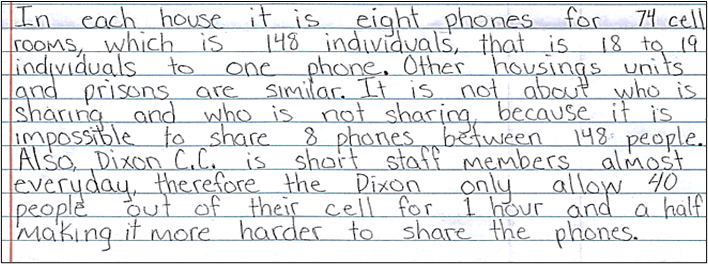 In each house it is eight phones for 74 cell
rooms, which is 148 individuals, that is 18 to 19
individuals to one phone. Other housings units
and prisons are similar. It is not about who is
sharing and who is not sharing, because it is
impossible to share 8 phones between 148 people.
Also, Dixon C.C. is short staff members almost
everyday, therefore the Dixon only allow 40
people out of their cell for 1 hour and a half
making it more harder to share the phones.